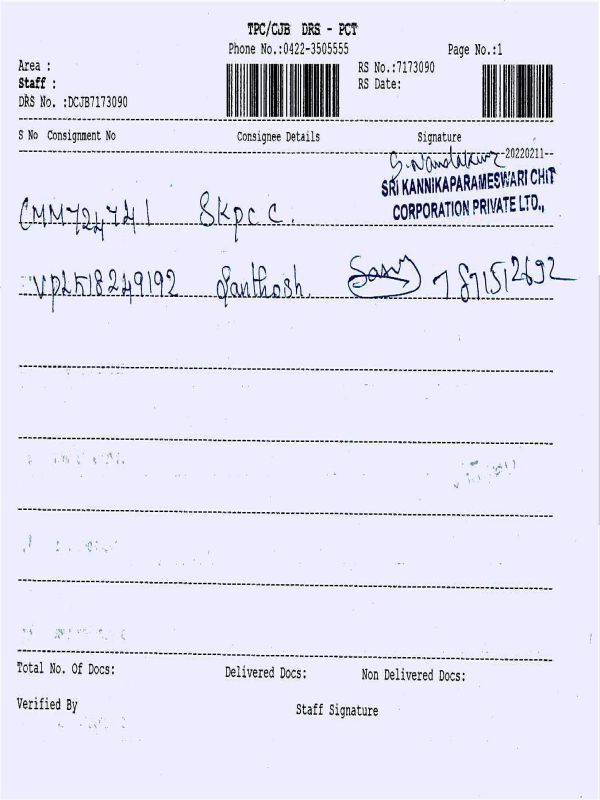 TPC/CJB DRS - PCT
Phone No.:0422-3505555 Page No.:1
Area : RS No.:7173090
Staff : RS Date:
DRS No. :DCJB7173090
S No Consignment No Consignee Details Signature
S. Nandakumar --20220211--
SRI KANNIKAPARAMESWARI CHIT
CORPORATION PRIVATE LTD.,
CMM724741 SKPCC.
Santhosh.
Total No. Of Docs: Delivered Docs: Non Delivered Docs:
Verified By Staff Signature